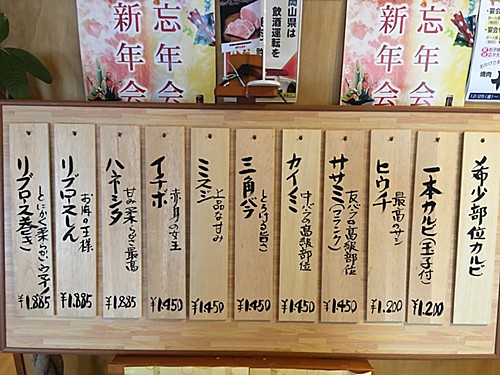 忘年会
新年会
岡山県は
飲酒運転を
忘年会
新年会
焼肉
希少部位カルビ
一本カルビ(玉子付)
¥1.200
ヒウチ
最高のサシ
¥1.200
ササミ(フランク)
友バラの高級部位
¥1.450
カイノミ
中バラの高級部位
¥1.450
三角バラ
とろける旨さ
¥1.450
ミスジ
上品な甘み
¥1.450
イチボ
赤身の女王
¥1.450
ハネシタ
甘み、柔らかさ最高
¥1.885
リブロースしん
お肉の王様
¥1.885
リブロース巻き
とにかく柔らかい、ウマイ!
¥1.885